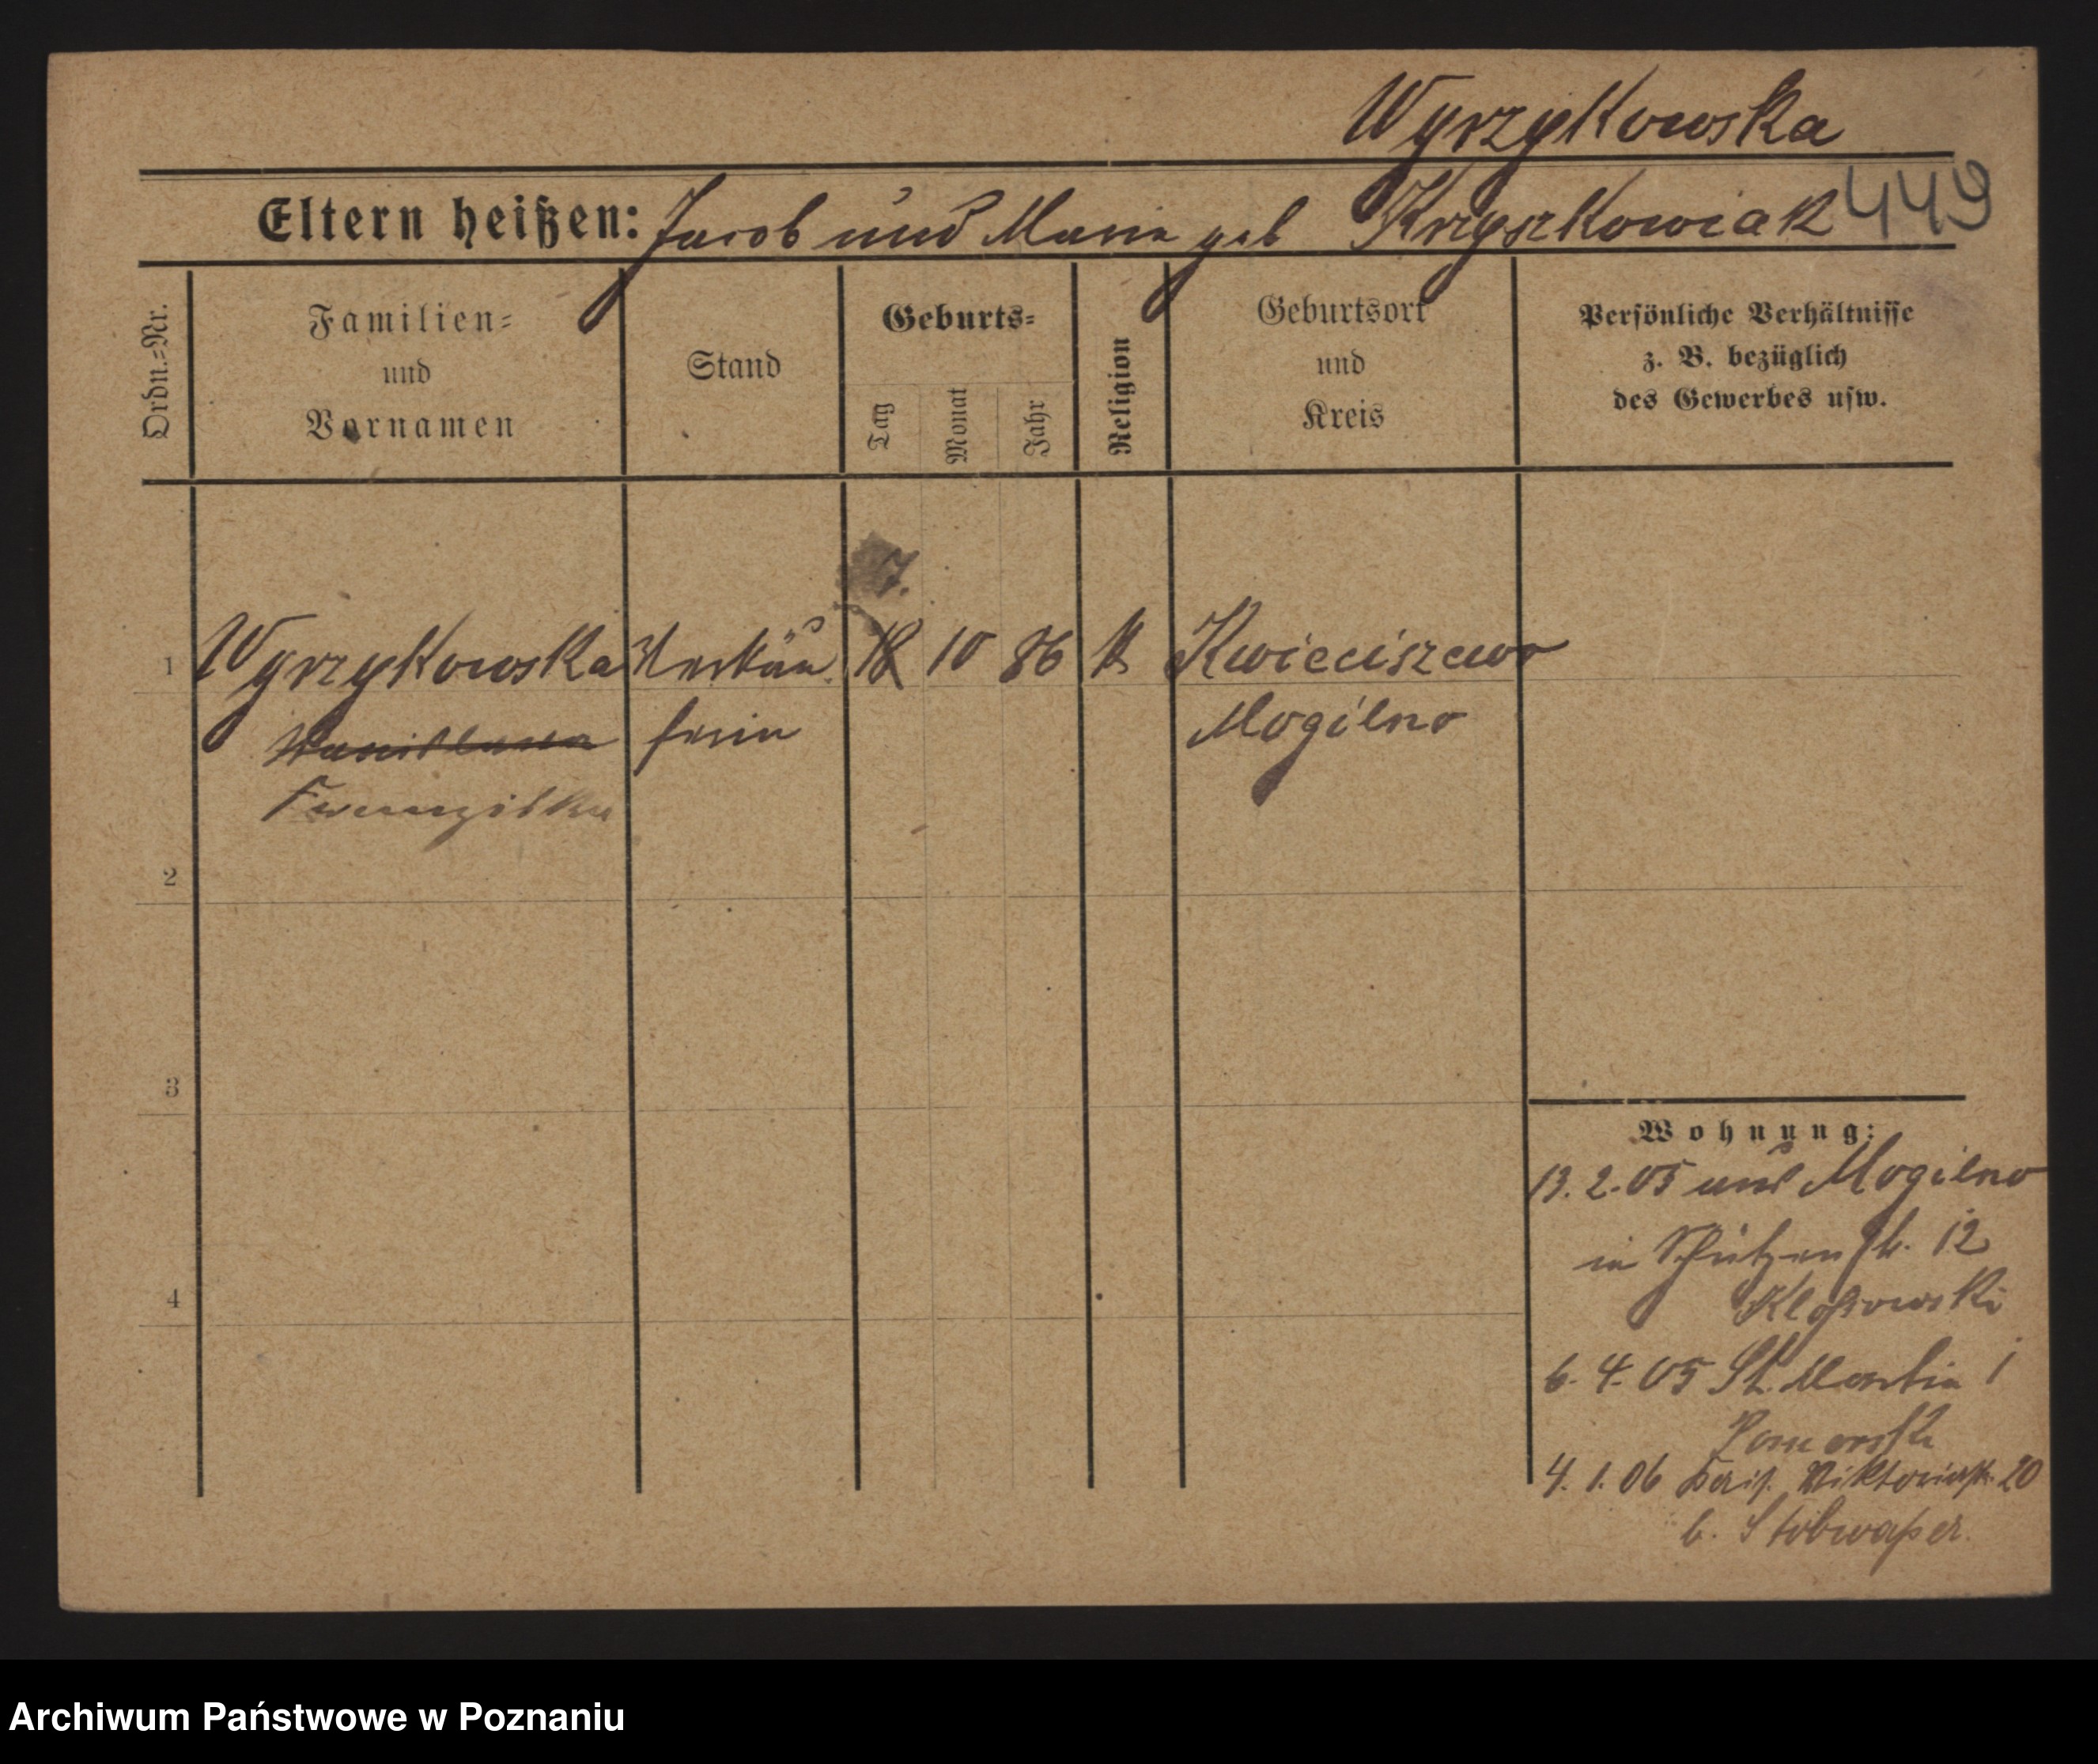 Wyrzykowska
Eltern heißen: Jacob und Maria geb Krzyszkowiak 449
Ordn.=Nr.
Familien=
und
Vornamen
Stand
Geburts=
Tag
Monat
Jahr
Religion
Geburtsort
und
Kreis
Persönliche Verhältnisse
z. B. bezüglich
des Gewerbes usw.
7.
1 Wyrzykowska Verkäu 18 10 86 k Kwieciszewo
Stanislawa ferin Mogilno
Franziska
2
3
4
Wohnung:
13. 2. 05 aus Mogilno
in Schützenstr. 12
Kloßowski
6. 4. 05 St. Martin 1
Pomorski
4. 1. 06 Viktoriastr. 20
b. Stobwaßer.
Archiwum Państwowe w Poznaniu